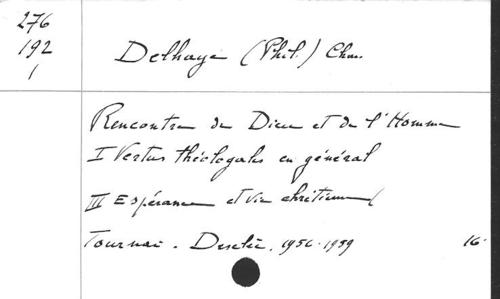 276
192
1
Delhaye (Phil.) Chan.
Rencontre de Dieu et de l'Homme
I Vertus théologales en général
III Espérance et vie chrétienne
Tournai - Desclée, 1956-1959 16°